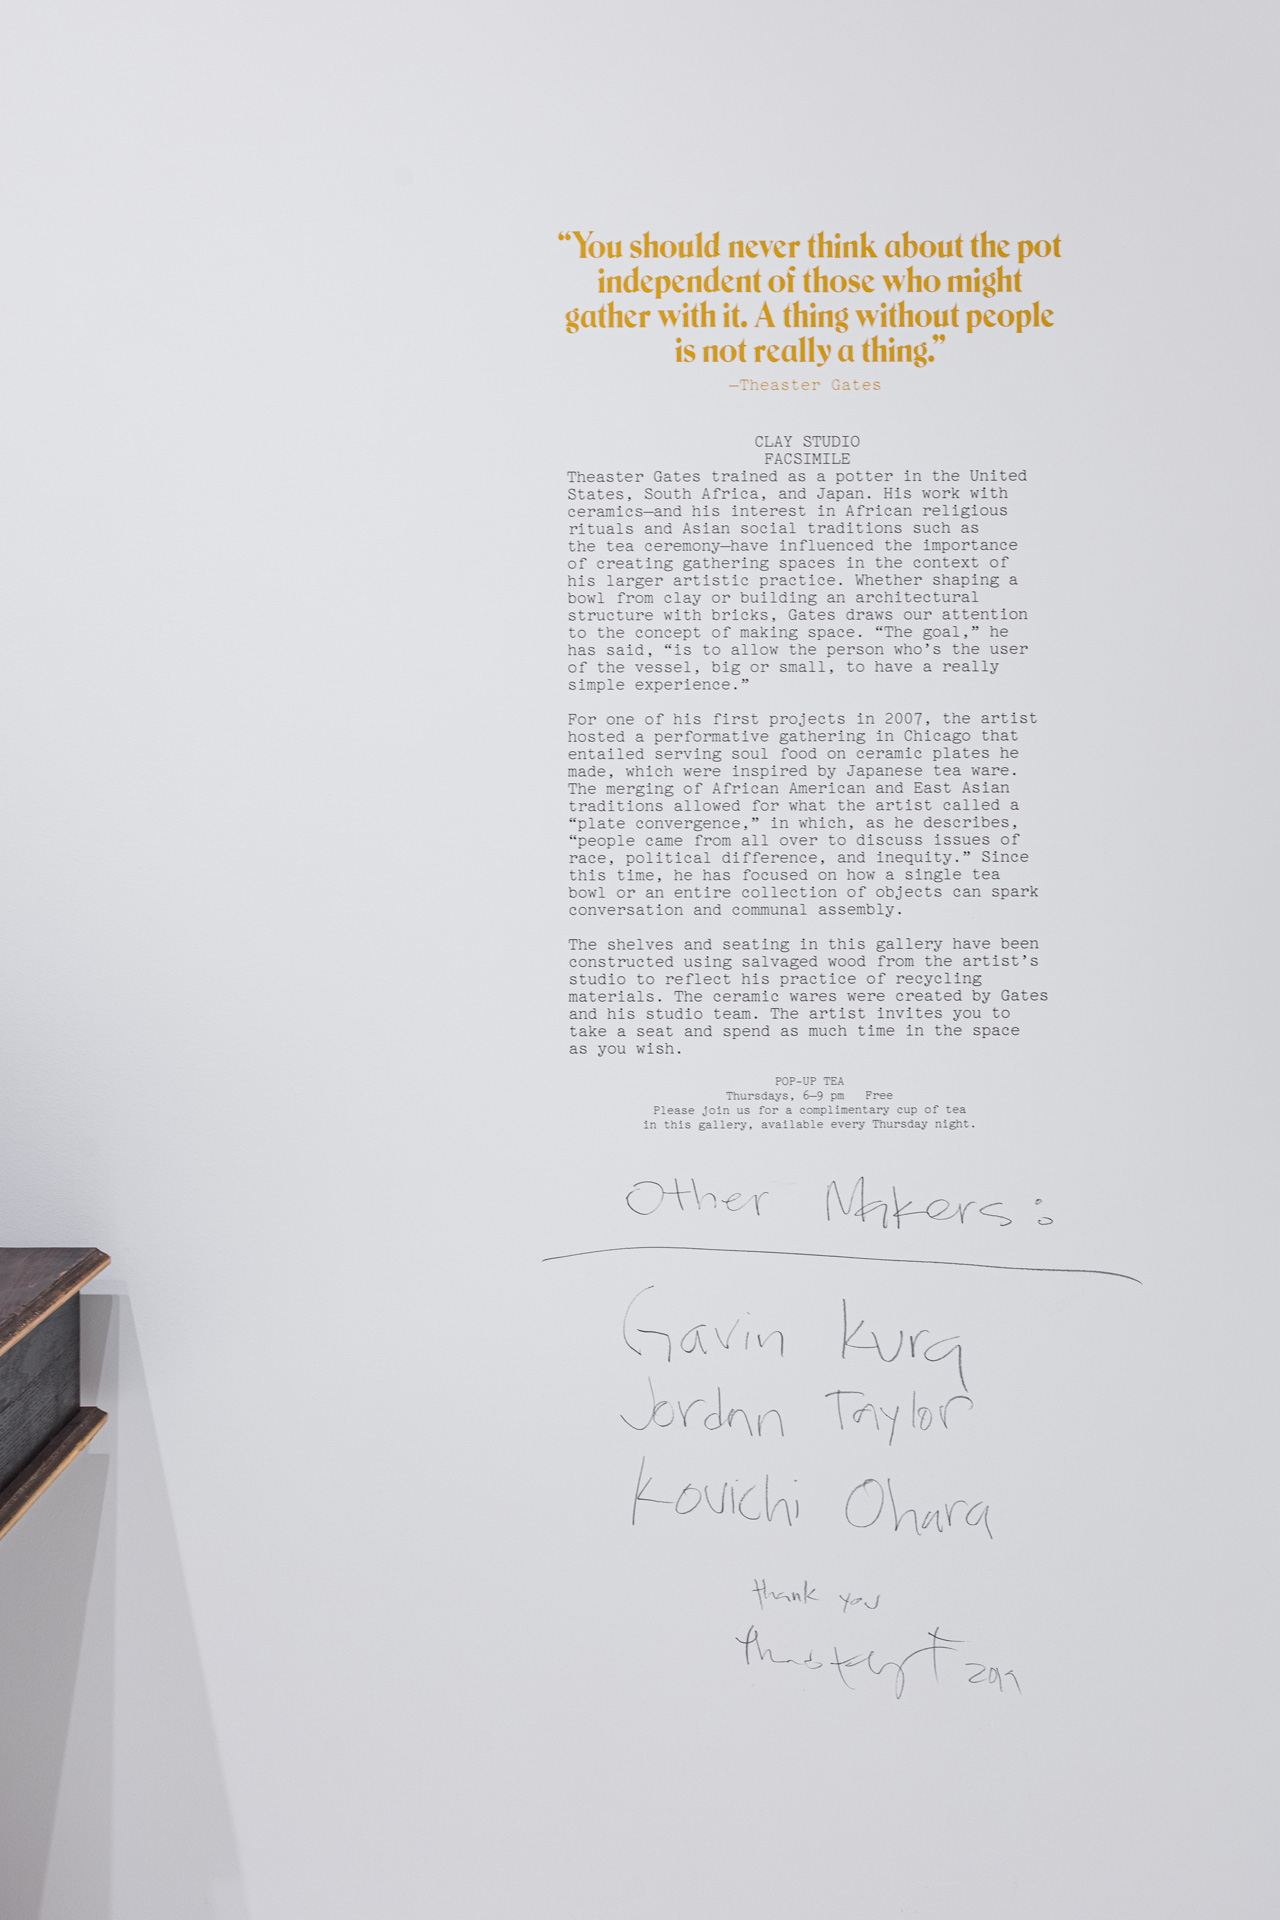 “You should never think about the pot
independent of those who might
gather with it. A thing without people
is not really a thing.”
—Theaster Gates
CLAY STUDIO
FACSIMILE
Theaster Gates trained as a potter in the United
States, South Africa, and Japan. His work with
ceramics—and his interest in African religious
rituals and Asian social traditions such as
the tea ceremony—have influenced the importance
of creating gathering spaces in the context of
his larger artistic practice. Whether shaping a
bowl from clay or building an architectural
structure with bricks, Gates draws our attention
to the concept of making space. “The goal,” he
has said, “is to allow the person who’s the user
of the vessel, big or small, to have a really
simple experience.”
For one of his first projects in 2007, the artist
hosted a performative gathering in Chicago that
entailed serving soul food on ceramic plates he
made, which were inspired by Japanese tea ware.
The merging of African American and East Asian
traditions allowed for what the artist called a
“plate convergence,” in which, as he describes,
“people came from all over to discuss issues of
race, political difference, and inequity.” Since
this time, he has focused on how a single tea
bowl or an entire collection of objects can spark
conversation and communal assembly.
The shelves and seating in this gallery have been
constructed using salvaged wood from the artist’s
studio to reflect his practice of recycling
materials. The ceramic wares were created by Gates
and his studio team. The artist invites you to
take a seat and spend as much time in the space
as you wish.
POP-UP TEA
Thursdays, 6–9 pm Free
Please join us for a complimentary cup of tea
in this gallery, available every Thursday night.
Other Makers:
Gavin
Jordan Taylor
Kouichi Ohara
thank you